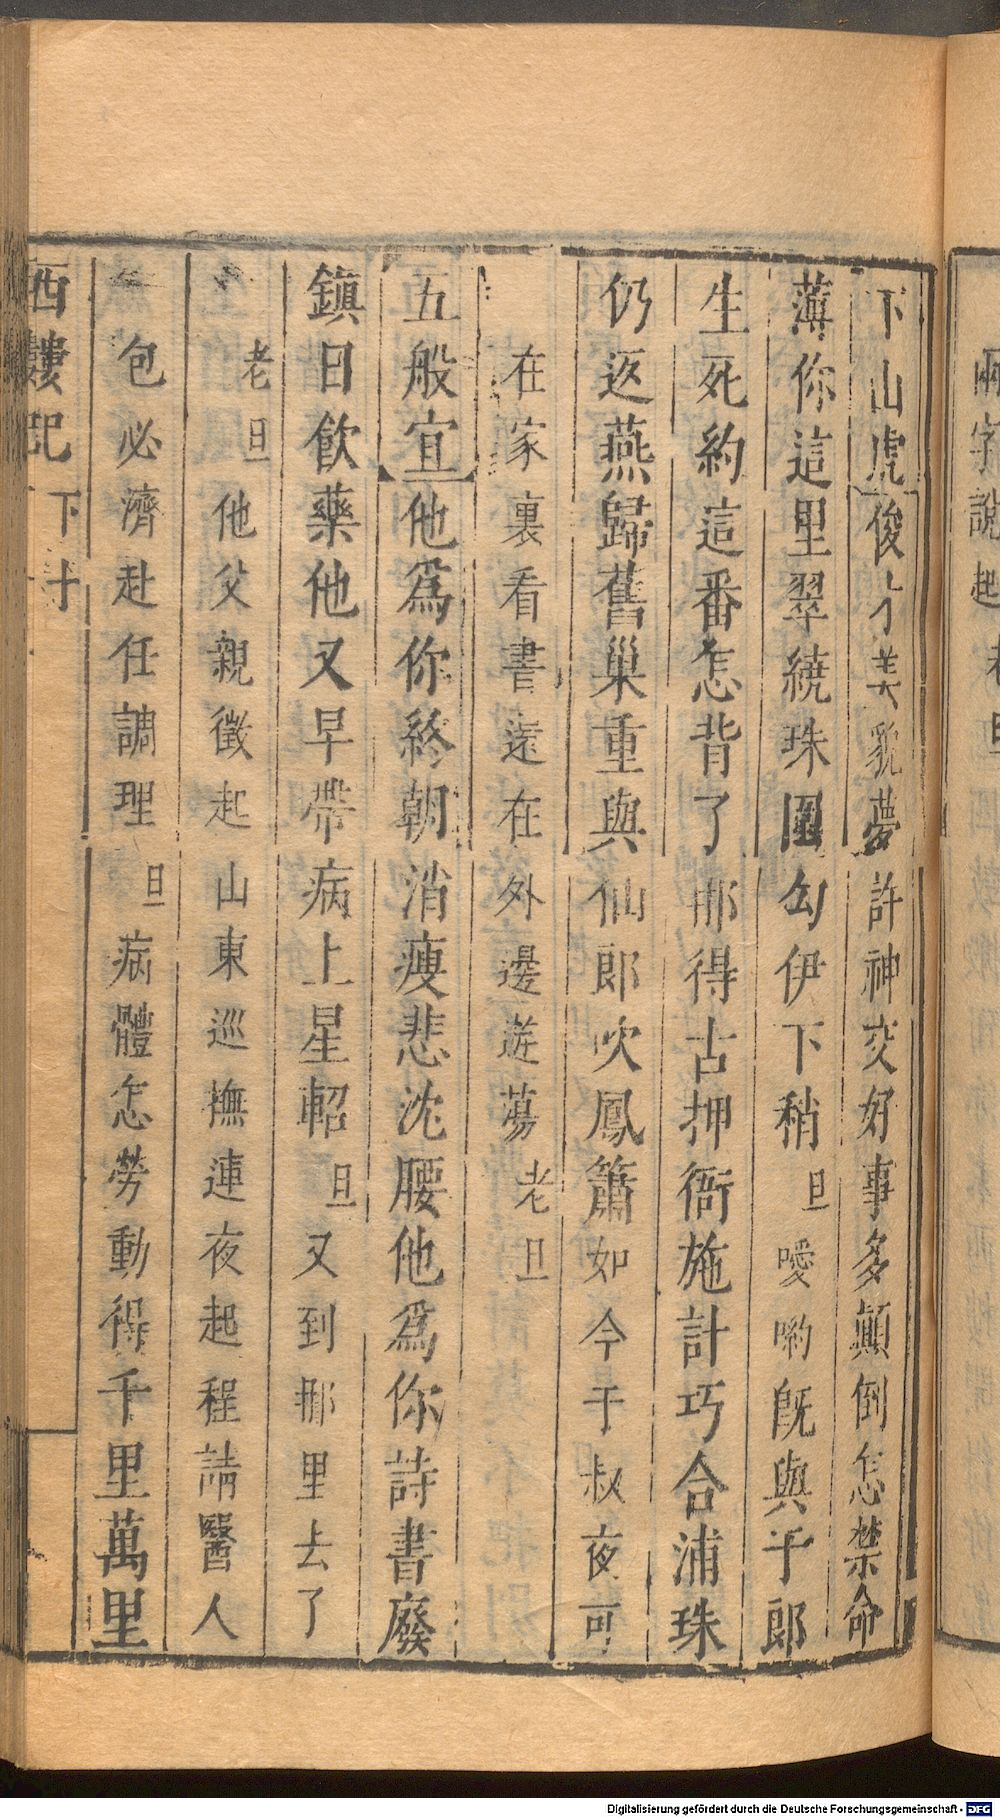 下山虎俊才美貌夢許神交好事多顛倒怎禁命
薄你這里翠繞珠圍勾伊下稍旦噯喲旣與于郎
生死約這番怎背了那得古押衙施計巧合浦珠
仍返燕歸舊巢重與仙郎吹鳳簫如今于叔夜可
在家裏看書還在外邊遊蕩老旦
五般宜他爲你終朝消瘦悲沈腰他爲你詩書廢
鎮日飲藥他又早帶病上星軺旦又到那里去了
老旦他父親徵起山東巡撫連夜起程請醫人
包必濟赴任調理旦病體怎勞動得千里萬里
西樓記 下
Digitalisierung gefördert durch die Deutsche Forschungsgemeinschaft - DFG